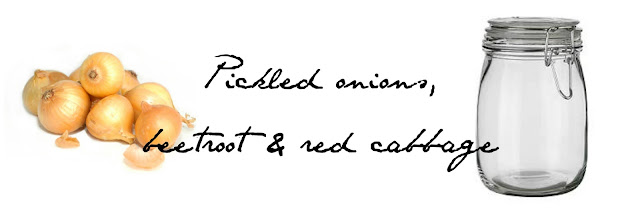 Pickled onions,
beetroot & red cabbage